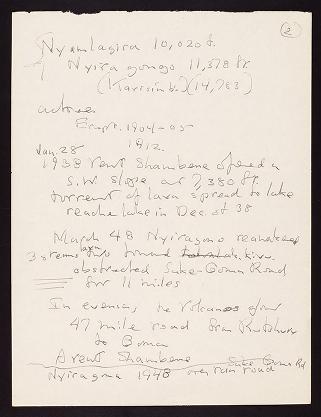 (2)
Nyamlagira 10,020 ft.
Nyiragongo 11,378 ft
(Karisimbi) (14,783)
active
Erupt. 1904-05
1912.
Jan. 28
1938 vent Shambene opened
S.W slope at 7,380 ft.
torrent of lava spread to lake
reache lake in Dec. of 38
March 48 Nyiragono
3 toward Kivu.
obstructed Sake-Goma Road
for 11 miles
In evening, the Volcanos
47 mile road from
to Goma
A vent Shambene Sake Goma Rd
Nyiragna 1948 over ran road